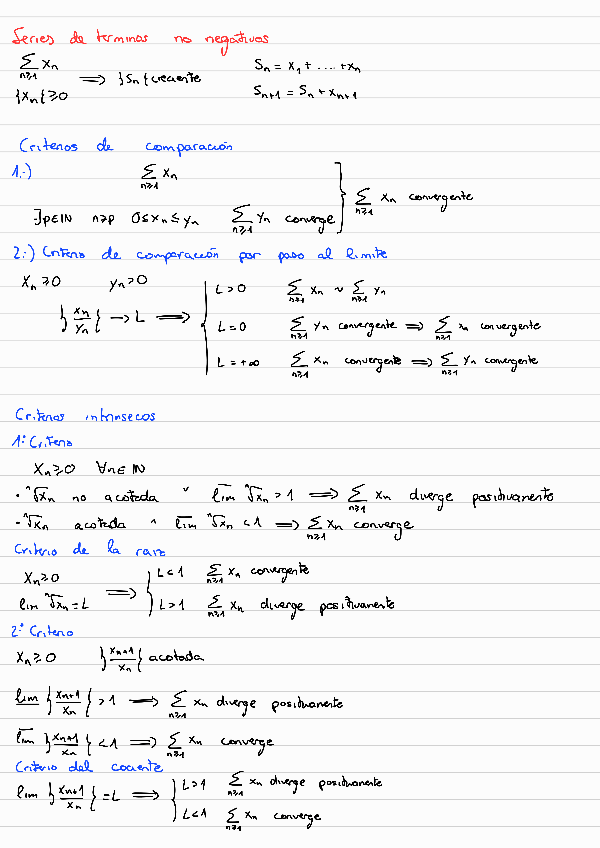 Series de terminos no negativos
∑_{n≥1} xₙ ⟹ }Sₙ{ creciente Sₙ = x₁ + ... + xₙ
}xₙ{ ≥ 0 Sₙ₊₁ = Sₙ + xₙ₊₁
Criterios de comparación
1.-) ∑_{n≥1} xₙ
∃p∈ℕ n≥p 0≤xₙ≤yₙ ∑_{n≥1} yₙ converge } ∑_{n≥1} xₙ convergente
2.-) Criterio de comparación por paso al limite
xₙ ≥ 0 yₙ > 0
}xₙ/yₙ{ → L ⟹ { L > 0 ∑_{n≥1} xₙ ~ ∑_{n≥1} yₙ
L = 0 ∑_{n≥1} yₙ convergente ⟹ ∑_{n≥1} xₙ convergente
L = +∞ ∑_{n≥1} xₙ convergente ⟹ ∑_{n≥1} yₙ convergente
Criterios intrinsecos
1º Criterio
xₙ ≥ 0 ∀n∈ℕ
· ⁿ√xₙ no acotada ∨ l̅i̅m̅ ⁿ√xₙ > 1 ⟹ ∑_{n≥1} xₙ diverge positivamente
· ⁿ√xₙ acotada ∧ l̅i̅m̅ ⁿ√xₙ < 1 ⟹ ∑_{n≥1} xₙ converge
Criterio de la raiz
xₙ ≥ 0 ⟹ { L < 1 ∑_{n≥1} xₙ convergente
lim ⁿ√xₙ = L L > 1 ∑_{n≥1} xₙ diverge positivamente
2º Criterio
xₙ ≥ 0 }xₙ₊₁/xₙ{ acotada
l̲i̲m̲ }xₙ₊₁/xₙ{ > 1 ⟹ ∑_{n≥1} xₙ diverge positivamente
l̅i̅m̅ }xₙ₊₁/xₙ{ < 1 ⟹ ∑_{n≥1} xₙ converge
Criterio del cociente
lim }xₙ₊₁/xₙ{ = L ⟹ { L > 1 ∑_{n≥1} xₙ diverge positivamente
L < 1 ∑_{n≥1} xₙ converge